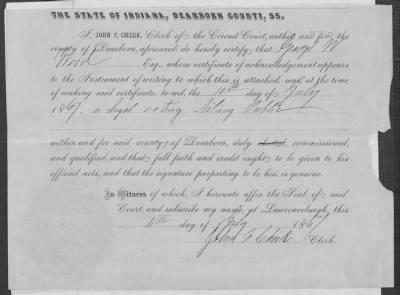 THE STATE OF INDIANA, DEARBORN COUNTY, SS.
I, JOHN F. CHEEK, Clerk of the Circuit Court, within and for the
county of Dearborn, aforesaid, do hereby certify, that George W
Wood Esq., whose certificate of acknowledgement appears
to the Instrument of writing to which this is attached, was, at the time
of making said certificate, to wit, the 10th day of July
1867, a legal acting Notary Public
within and for said county of Dearborn, duly elected, commissioned,
and qualified, and that full faith and credit ought to be given to his
official acts, and that the signature purporting to be his is genuine.
In Witness of which, I hereunto affix the Seal of said
Court, and subscribe my name, at Lawrenceburgh, this
day of July 1867
John F Cheek Clerk.